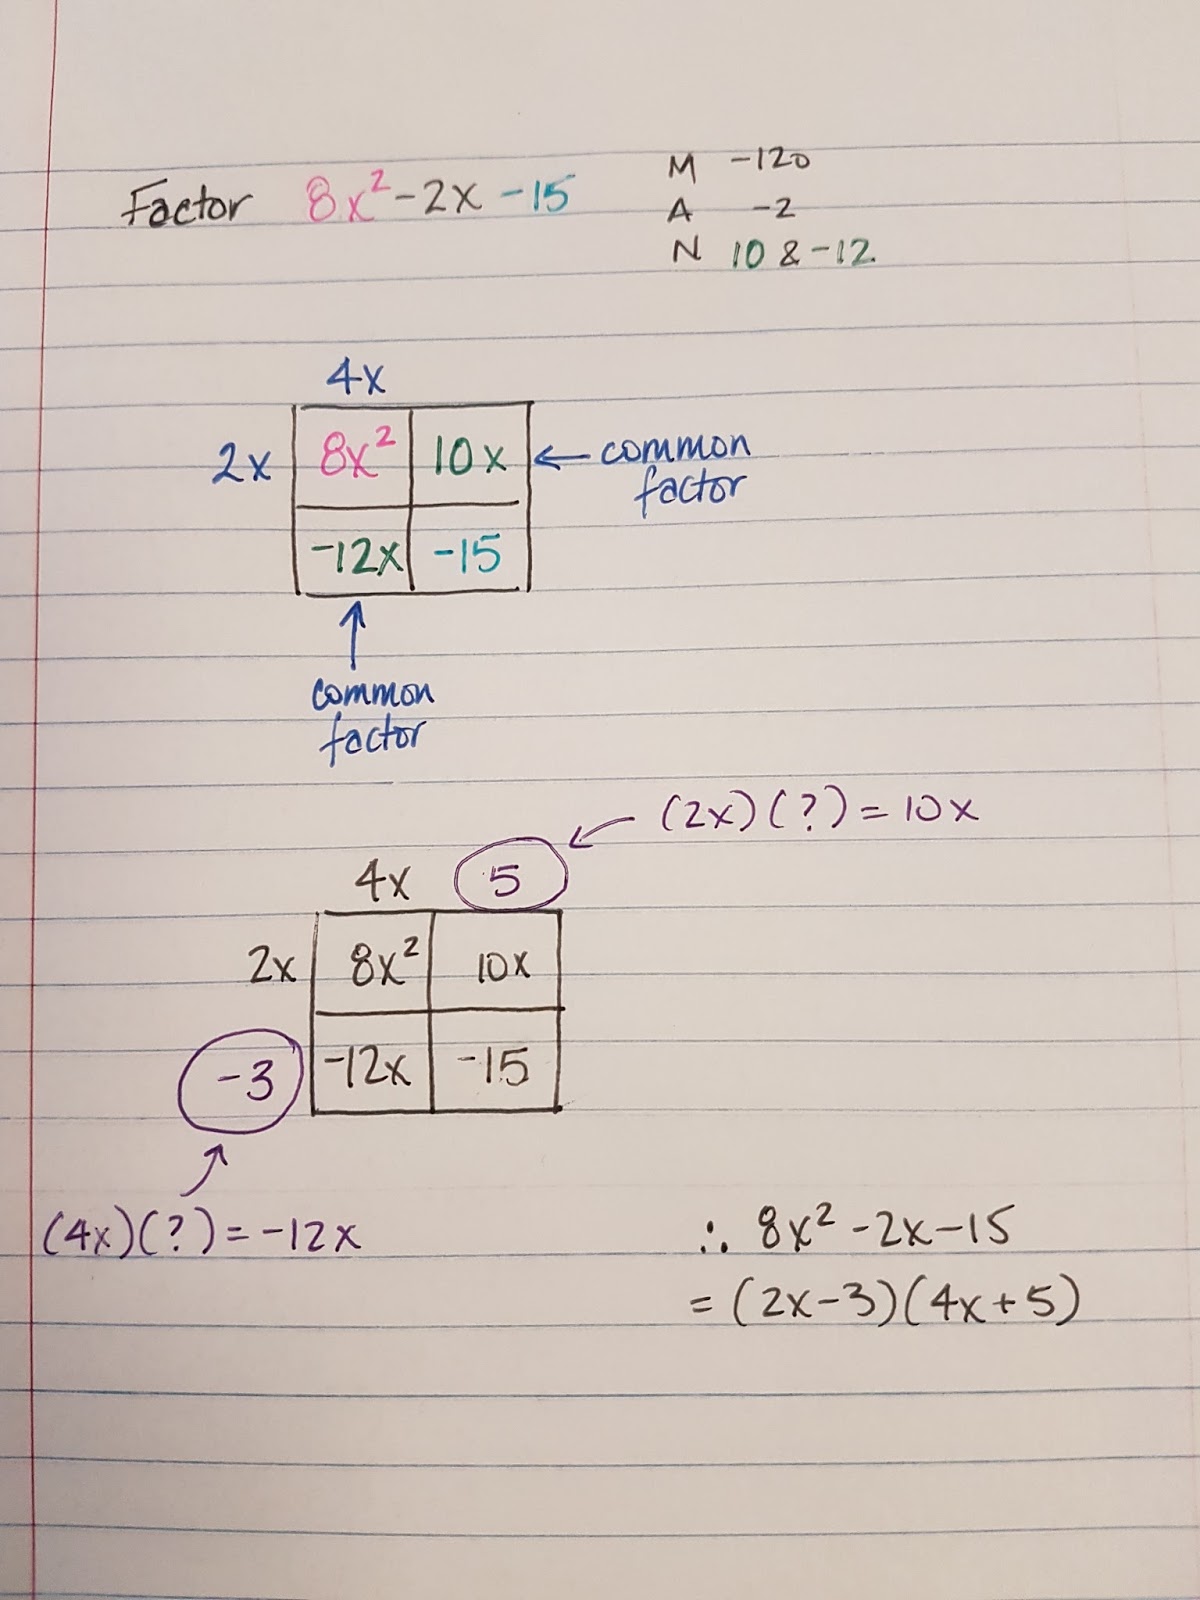 Factor 8x² - 2x - 15
M -120
A -2
N 10 & -12.
4x
2x 8x² 10x ← common
factor
-12x -15
↑
common
factor
(2x)(?) = 10x
4x 5
2x 8x² 10x
-3 -12x -15
(4x)(?) = -12x
∴ 8x² - 2x - 15
= (2x - 3)(4x + 5)